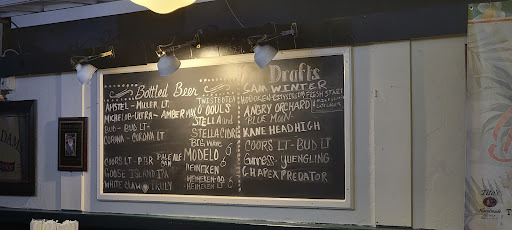 Bottled Beer
AMSTEL - MILLER LT.
MICHELOB-ULTRA - AMBER
BUD - BUD LT-
CORONA - CORONA LT.
COORS LT - PBR PALE ALE
GOOSE ISLAND IPA
WHITE CLAW TRULY
TWISTED TEA
O'DOULS
STELLA
STELLA CIDRE
BIG WAVE
MODELO
HEINEKEN
HEINEKEN 00
HEINEKEN LT
Drafts
SAM WINTER
ANGRY ORCHARD
BLUE MOON
KANE HEAD HIGH
COORS LT - BUD LT
Guinness - YUENGLING
APEX PREDATOR
Tito's
Handmade